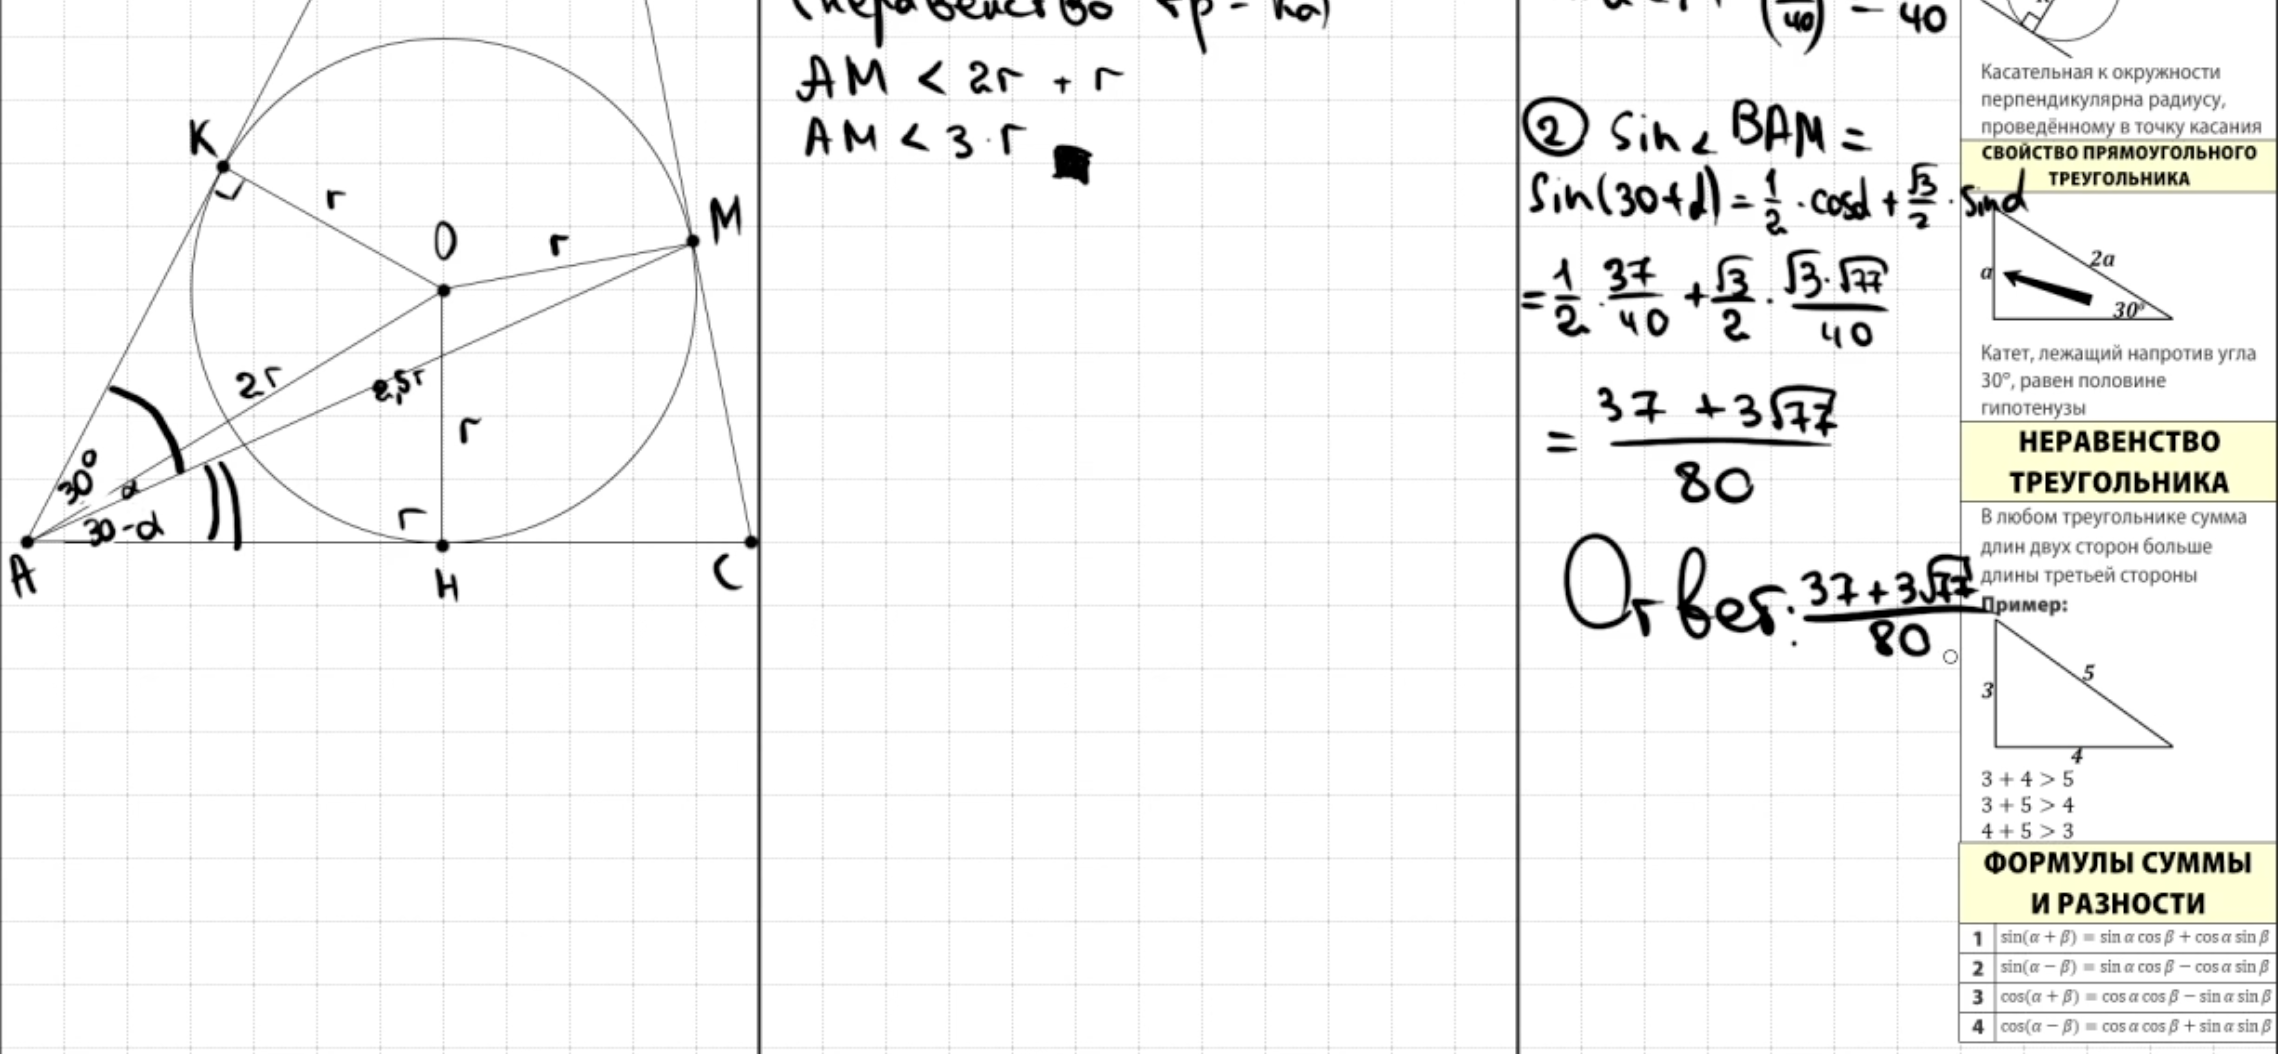 K
r
O
r
M
2r
2,5r
r
30°
α
30-α
r
A
H
C
(неравенство тр-ка)
AM < 2r + r
AM < 3·r
40
= 40
② Sin∠BAM =
Sin(30+α) = 1/2 · cosα + √3/2 · Sinα
= 1/2 · 37/40 + √3/2 · √3·√77/40
= 37 + 3√77 / 80
Ответ: 37 + 3√77 / 80
Касательная к окружности
перпендикулярна радиусу,
проведённому в точку касания
СВОЙСТВО ПРЯМОУГОЛЬНОГО
ТРЕУГОЛЬНИКА
2a
a
30°
Катет, лежащий напротив угла
30°, равен половине
гипотенузы
НЕРАВЕНСТВО
ТРЕУГОЛЬНИКА
В любом треугольнике сумма
длин двух сторон больше
длины третьей стороны
Пример:
5
3
4
3 + 4 > 5
3 + 5 > 4
4 + 5 > 3
ФОРМУЛЫ СУММЫ
И РАЗНОСТИ
1 sin(α + β) = sin α cos β + cos α sin β
2 sin(α − β) = sin α cos β − cos α sin β
3 cos(α + β) = cos α cos β − sin α sin β
4 cos(α − β) = cos α cos β + sin α sin β